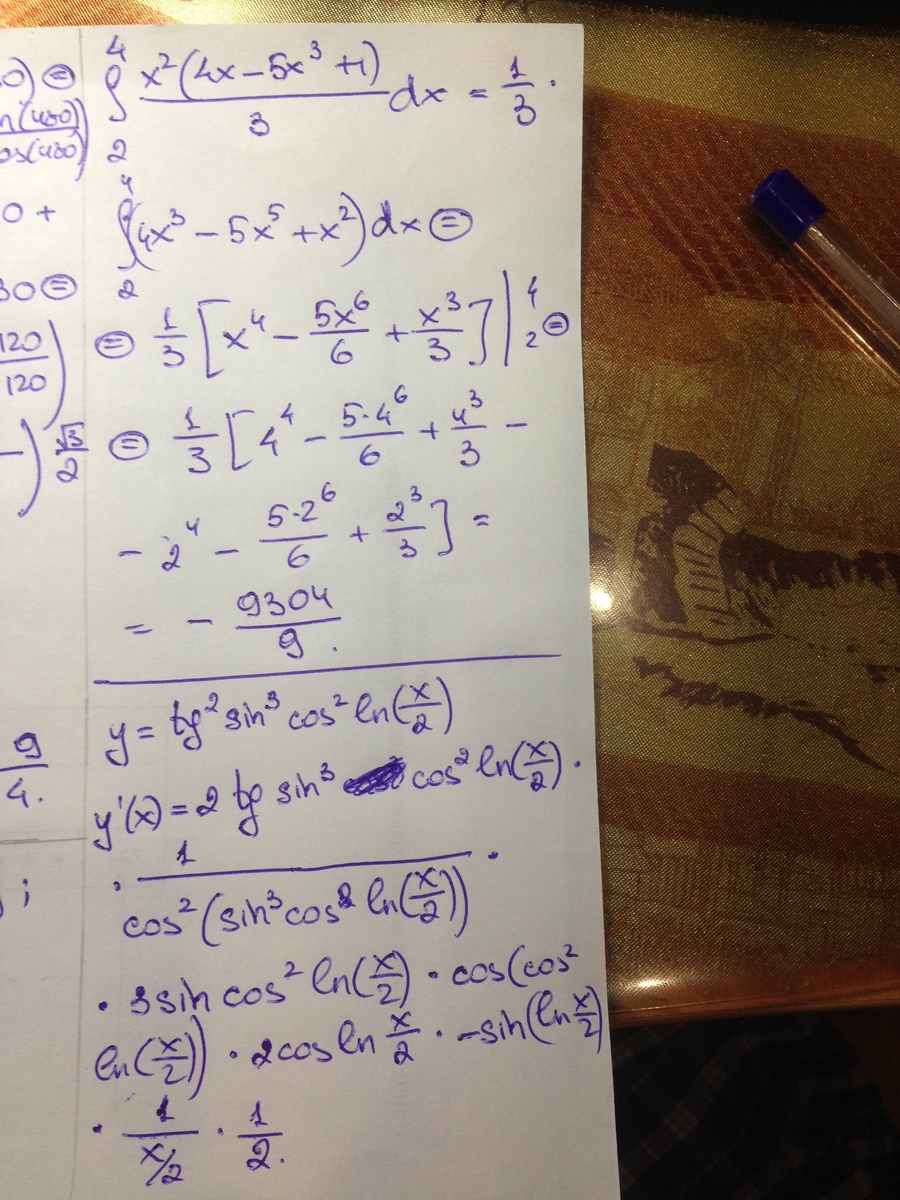 0) ⊜
n(480)
os(480)
0 +
30 ⊜
120
120
) √3/2
9/4.
;
∫₂⁴ x²(4x − 5x³ + 1)/3 dx = 1/3 ·
∫₂⁴ (4x³ − 5x⁵ + x²) dx ⊜
⊜ 1/3 [x⁴ − 5x⁶/6 + x³/3] |₂⁴ ⊜
⊜ 1/3 [4⁴ − 5·4⁶/6 + 4³/3 −
− 2⁴ − 5·2⁶/6 + 2³/3] =
= − 9304/9.
y = tg² sin³ cos² ln(x/2)
y'(x) = 2 tg sin³ cos² ln(x/2) ·
· 1/cos²(sin³ cos² ln(x/2)) ·
· 3 sin cos² ln(x/2) · cos(cos²
ln(x/2)) · 2cos ln x/2 · −sin(ln x/2)
· 1/(x/2) · 1/2.